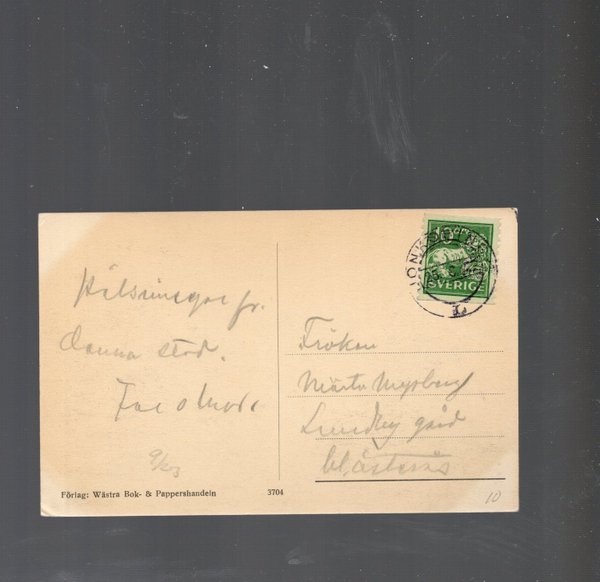 Hälsningar fr.
denna stad.
Far o Mor.
Förlag: Wästra Bok- & Pappershandeln
3704
SVERIGE
JÖNKÖPING
Fröken
Märta Nygberg
Lundby gård
Västerås
10